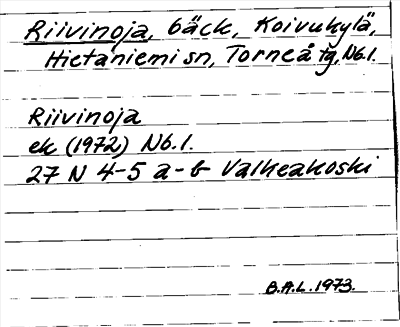 Riivinoja, bäck, Koivukylä,
Hietaniemi sn, Torneå tg, Nb.l.
Riivinoja
ek (1972) Nb.l.
27 N 4-5 a-b Valkeakoski
B.A.L. 1973.